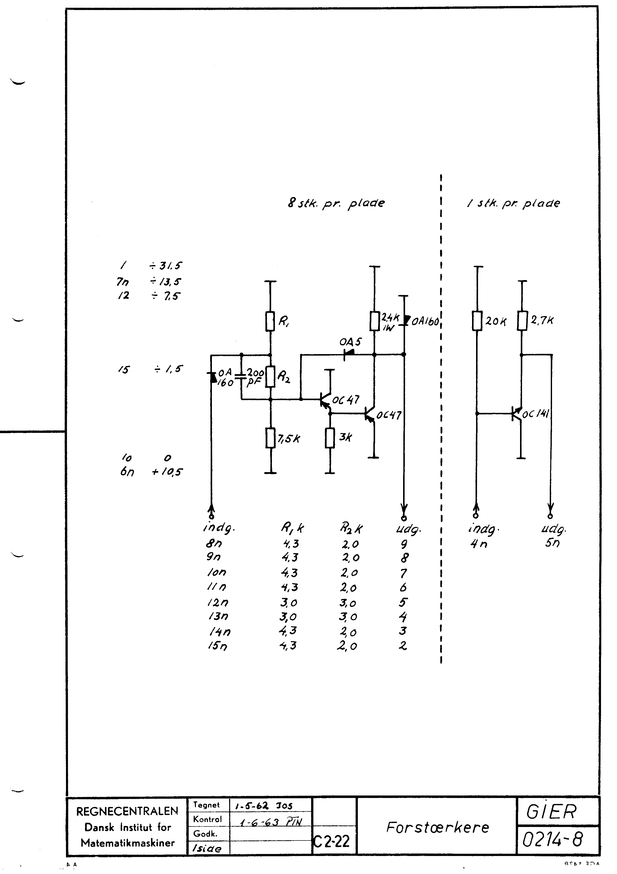 8 stk. pr. plade
1 stk. pr. plade
1 ÷31,5
7n ÷13,5
12 ÷7,5
R1
24K
1W
OA160
20K
2,7K
OA5
15 ÷1,5
OA
160
200
pF
R2
OC47
OC47
OC141
7,5K
3K
10 0
6n +10,5
indg. R1 K R2 K udg.
8n 4,3 2,0 9
9n 4,3 2,0 8
10n 4,3 2,0 7
11n 4,3 2,0 6
12n 3,0 3,0 5
13n 3,0 3,0 4
14n 4,3 2,0 3
15n 4,3 2,0 2
indg. udg.
4n 5n
REGNECENTRALEN
Dansk Institut for
Matematikmaskiner
Tegnet 1-5-62 JOS
Kontrol 1-6-63 PTN
Godk.
1side
C2-22
Forstærkere
GIER
0214-8